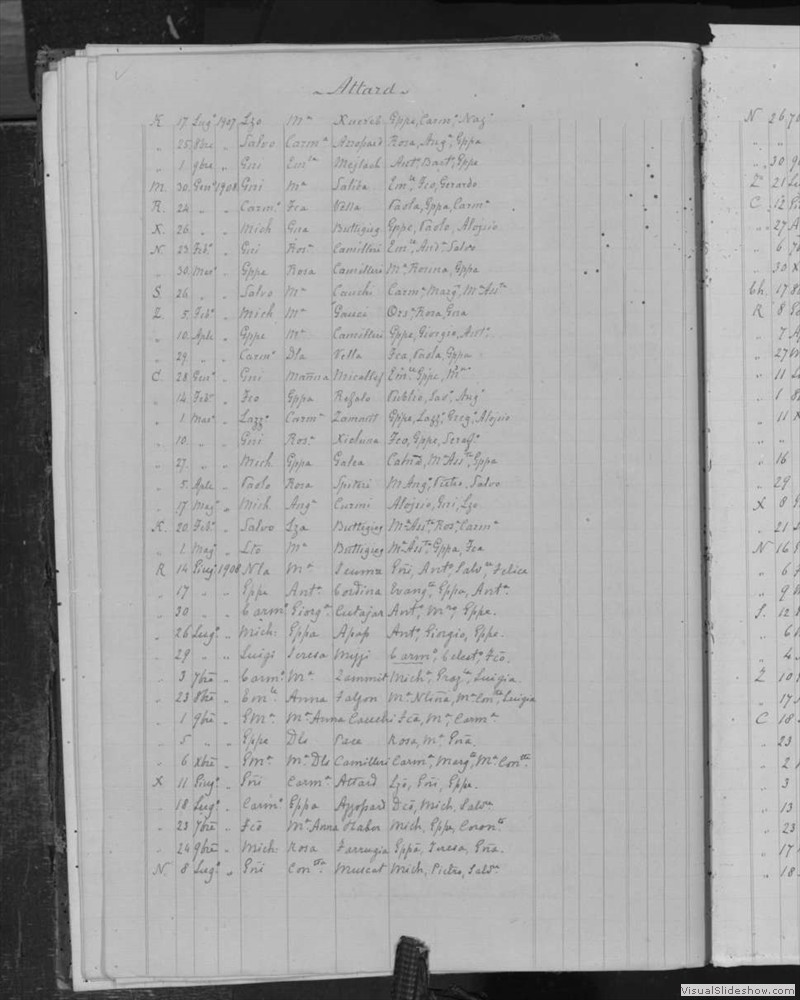 Attard
K 17 Lugº 1907 Lzo Mª Xuereb Gppe, Carmª, Nazª
„ 25 8bre „ Salvo Carmª Azzopard Rosa, Angª, Gppa
„ 1 9bre „ Gni Emla Mejlach Antº, Bartº, Gppe
M. 30 Genº 1908 Gni Mª Saliba Emla, Fco, Gerardo
R. 24 „ „ Carmº Fca Vella Paola, Gppa, Carmª
X. 26 „ „ Mich Gna Buttigieg Gppe, Paolo, Aloisio
N. 23 Febº „ Gni Rosª Camilleri Emle, Andª, Salvo
„ 30 Marº „ Gppe Rosa Camilleri Mª Rosina, Gppa
S. 26 „ „ Salvo Mª Cauchi Carmª, Margª, Mª Assta
Z. 5 Febº „ Mich Mª Gauci Orsª, Rosa, Gna
„ 10 Aple „ Gppe Mª Camilleri Gppe, Giorgio, Antª
„ 29 „ „ Carmº Dla Vella Fca, Paola, Gppa
C. 28 Genº „ Gni Mañña Micallef Emle, Gppe, Mª
„ 14 Febº „ Fco Gppa Refalo Publio, Savª, Angº
„ 1 Marº „ Lazzº Carmª Zammit Gppe, Lazzº, Gregº, Aloisio
„ 10 „ „ Gni Rosª Xicluna Fco, Gppe, Serafª
„ 27 „ „ Mich Gppa Galea Catnª, Mª Assta, Gppa
„ 5 Aple „ Paolo Rosa Spiteri M Angª, Pietro, Salvo
„ 17 Magº „ Mich Angª Curmi Aloisio, Gni, Lzo
K. 20 Febº „ Salvo Lza Buttigieg Mª Assta, Rosª, Carmª
„ 1 Magº „ Lto Mª Buttigieg Mª Assta, Gppa, Fca
R 14 Giugº 1908 Nla Mª Sciuma Gñi, Antº, Salvra, Felica
„ 17 „ „ Gppe Antª Cordina Evangta, Gppa, Antª
„ 30 „ „ Carmº Giorgª Cutajar Antº, Mª, Gppe.
„ 26 Lugº „ Mich: Gppa Apap Antº, Giorgio, Gppe.
„ 29 „ „ Luigi Teresa Mizzi Carmº, Celestº, Fcõ.
„ 3 7bre „ Carmº Mª Zammit Michª, Grazla, Luigia.
„ 23 8bre „ Emle Anna Falzon Mª Nlina, Mª Conta, Luigia
„ 1 9bre „ Emª Mª Anna Cauchi Fca, Mª, Carmª
„ 5 „ „ Gppe Dls Pace Rosa, Mª, Gna.
„ 6 Xbre „ Emª Mª Dls Camilleri Carmª, Margta, Mª Conta.
X 11 Giugº „ Gñi Carmª Attard Lzõ, Gñi, Gppe.
„ 18 Lugº „ Carmº Gppa Azzopard Dcõ, Mich, Salvª
„ 23 7bre „ Fcõ Mª Anna Haber Mich, Gppe, Coronta
„ 24 9bre „ Mich: Rosa Farrugia Gppa, Teresa, Gna.
N. 8 Lugº „ Gñi Conta Muscat Mich, Pietro, Salvª
N 26
„ 30
Z 21
C 12
„ 27
„ 6
„ 30
Ch. 17
R 8
„ 7
„ 27
„ 11
„ 1
„ 11
„ 16
„ 29
X 8
„ 21
N 16
„ 6
„ 9
S. 12
„ 6
„ 4
Z 10
„ 17
C 18
„ 23
„ 2
„ 3
„ 13
„ 23
„ 17
„ 18
VisualSlideshow.com